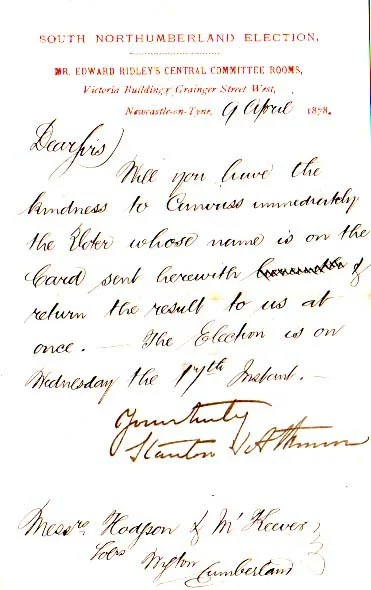 SOUTH NORTHUMBERLAND ELECTION.
MR. EDWARD RIDLEY'S CENTRAL COMMITTEE ROOMS,
Victoria Buildings, Grainger Street West,
Newcastle-on-Tyne, 9 April 1878.
Dear Sirs
Will you have the
kindness to Canvass immediately
the Voter whose name is on the
Card sent herewith &
return the result to us at
once. — The Election is on
Wednesday the 17th Instant. —
Yours truly
Stanton & Atkinson
Messrs Hodgson & McKeever
Solrs
Wigton
Cumberland